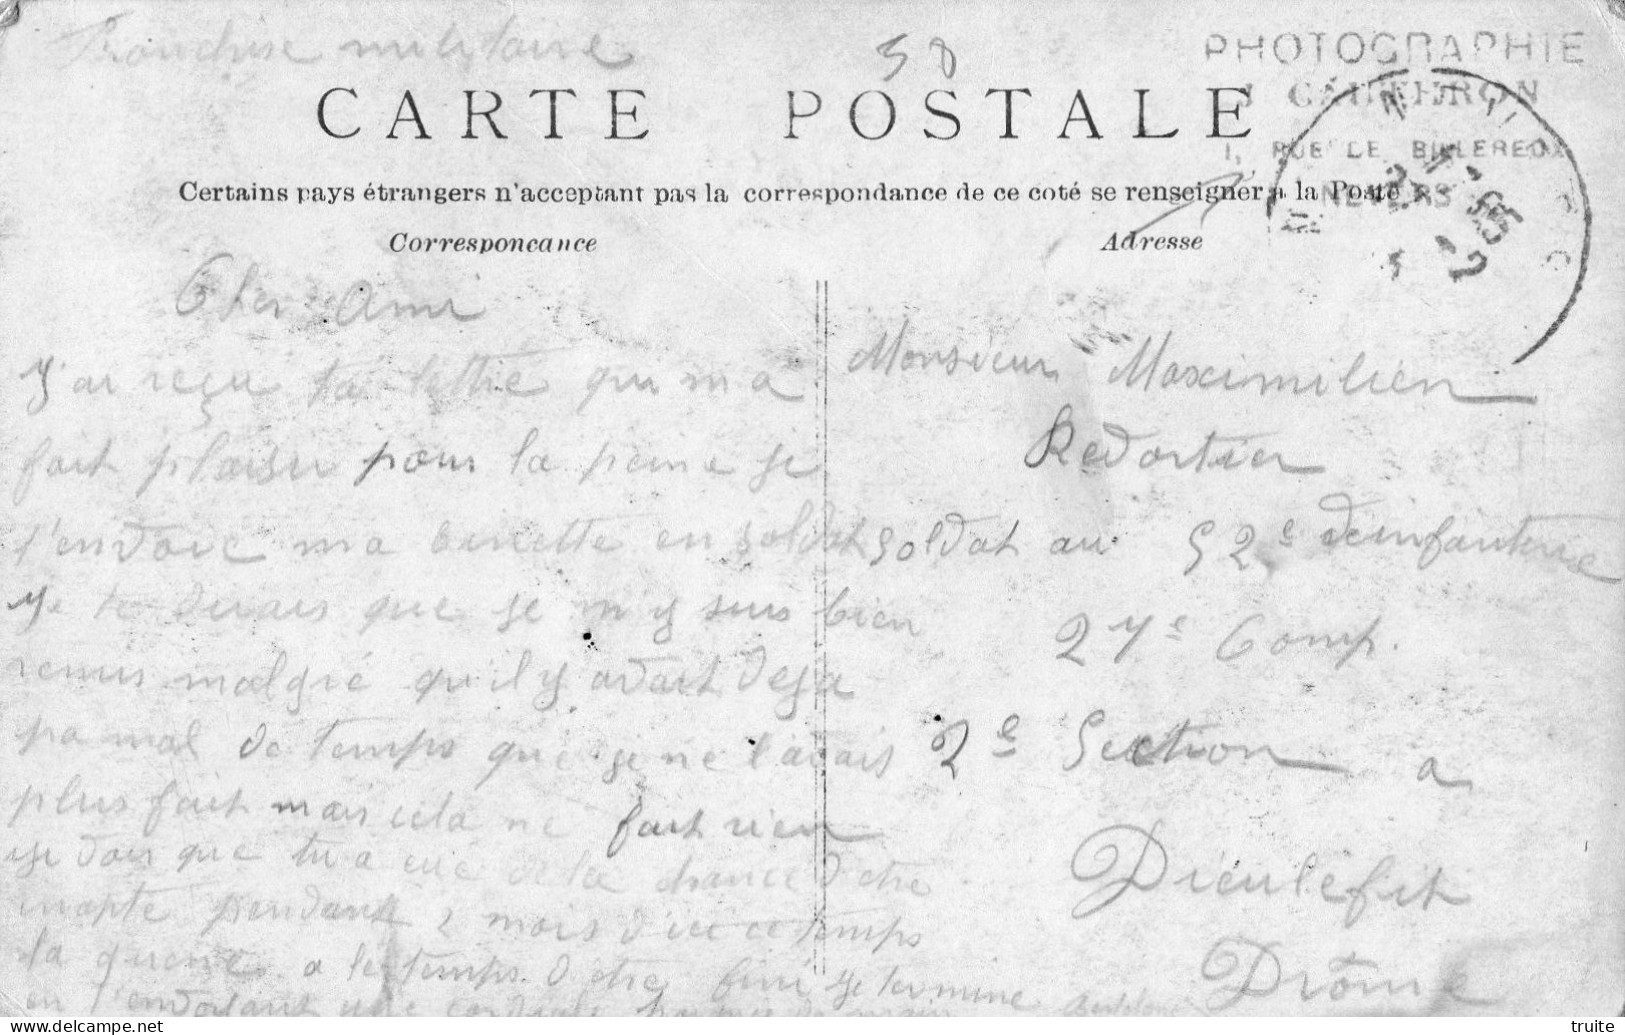 Franchise militaire
58
PHOTOGRAPHIE
CARTE POSTALE
1, RUE DE
NEVERS
Certains pays étrangers n'acceptant pas la correspondance de ce coté se renseigner a la Poste
Correspondance
Adresse
Cher Ami
J'ai reçu ta lettre qui m'a
fait plaisir pour la peine je
t'envoie ma binette en soldat
Je te dirais que je m'y suis bien
remis malgré qu'il y avait deja
pa mal de temps que je ne l'avais
plus fait mais cela ne fait rien
je vois que tu a eue de la chance d'etre
inapte pendant 2 mois d'ici ce temps
la guerre a le temps d'etre fini je termine
en t'envoyant une cordiale poignee de main
Monsieur Maximilien
Redortier
Soldat au 52e d'einfanterie
27e Comp.
2e Section a
Dieulefit
Drôme
truite